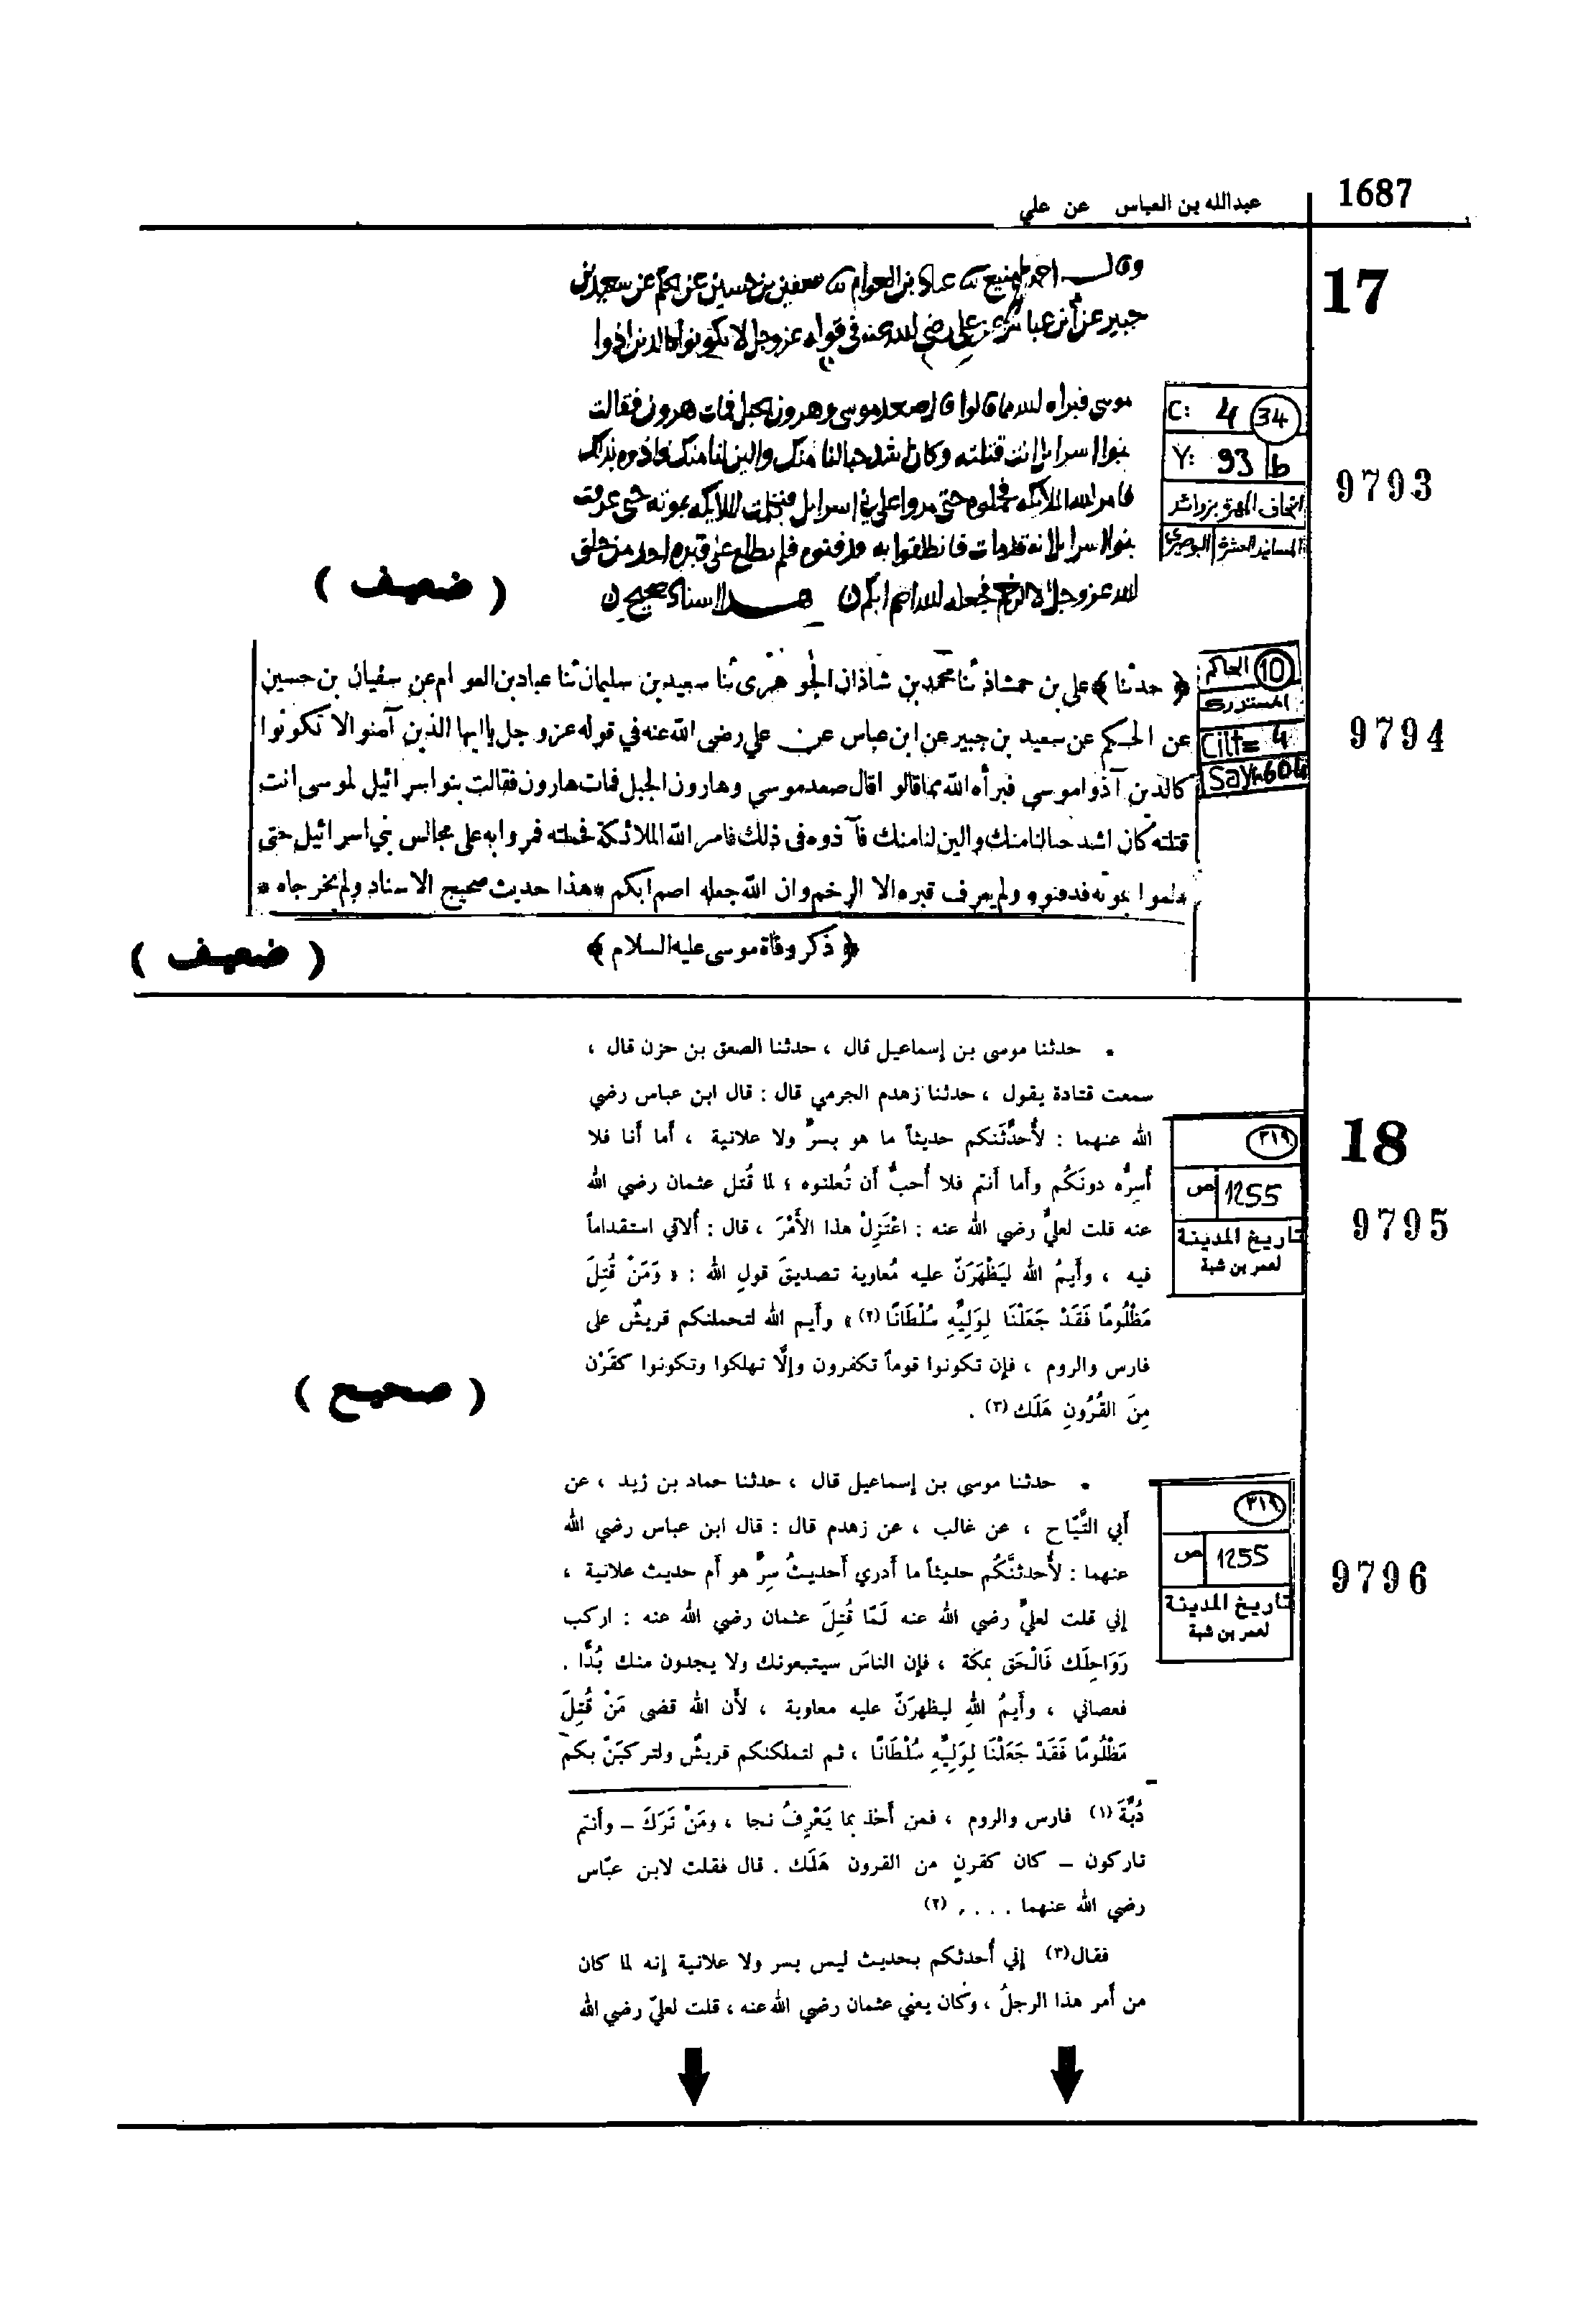 عبدالله بن العباس عن علي
1687
17
وقال احمد بن منيع ثنا عباد بن العوام ثنا سفين بن حسين عن الحكم عن سعيد بن
جبير عن ابن عباس عن علي رضي الله عنه في قوله عز وجل لا تكونوا كالذين اذوا
موسى فبراه الله مما قالوا قال صعد موسى وهرون الجبل فمات هرون فقالت
بنوا اسرايل انت قتلته وكان اشد حبا لنا منك والين لنا منك فاذوه بذلك
فامر الله الملايكة فحملوه حتى مروا على بني اسرايل وتكلمت الملايكة بموته حتى عرفت
بنوا اسرايل انه قد مات فانطلقوا به ودفنوه فلم يطلع على قبره احد من خلق
الله عز وجل الا الرخم فجعله الله اصم ابكم هذا اسناد صحيح
( ضعيف )
C: 4 34
Y: 93 b
اتحاف المهرة بزوائد
المسانيد العشرة البوصيري
9793
﴿ حدثنا ﴾ علي بن حمشاذ ثنا محمد بن شاذان الجوهري ثنا سعيد بن سليمان ثنا عباد بن العوام عن سفيان بن حسين
عن الحكم عن سعيد بن جبير عن ابن عباس عن علي رضى الله عنه في قوله عز وجل يا ايها الذين آمنوا لا تكونوا
كالذين آذوا موسى فبرأه الله مما قالوا قال صعد موسى وهارون الجبل فمات هارون فقالت بنو اسرائيل لموسى انت
قتلته كان اشد حبا لنا منك والين لنا منك فآذوه فى ذلك فامر الله الملائكة فحملته فمروا به على مجالس بني اسرائيل حتى
علموا بموته فدفنوه ولم يعرف قبره الا الرخم وان الله جعله اصم ابكم * هذا حديث صحيح الاسناد ولم يخرجاه *
﴿ ذكر وفاة موسى عليه السلام ﴾
( ضعيف )
10 الحاكم
المستدرك
Cilt= 4
Sayfa 604
9794
• حدثنا موسى بن إسماعيل قال ، حدثنا الصعق بن حزن قال ،
سمعت قتادة يقول ، حدثنا زهدم الجرمي قال : قال ابن عباس رضي
الله عنهما : لأُحدِّثَنكم حديثاً ما هو بسرٍّ ولا علانية ، أما أنا فلا
أُسِرُّه دونَكُم وأما أَنتم فلا أُحبُّ أن تُعلنوه ؛ لما قُتل عثمان رضي الله
عنه قلت لعليٍّ رضي الله عنه : اعْتَزِلْ هذا الأَمْرَ ، قال : أُلاقي استقداماً
فيه ، وأَيمُ الله ليَظْهَرَنَّ عليه مُعاوية تصديقَ قولِ الله : « وَمَنْ قُتِلَ
مَظْلُومًا فَقَدْ جَعَلْنَا لِوَلِيِّهِ سُلْطَانًا (٢) » وأَيم الله لتحملنكم قريشٌ على
فارس والروم ، فإن تكونوا قوماً تكفرون وإلَّا تهلكوا وتكونوا كقَرْن
مِنَ القُرُونِ هَلَك (٣) .
( صحيح )
٣١٩
ص 1255
تاريخ المدينة
لعمر بن شبة
18
9795
• حدثنا موسى بن إسماعيل قال ، حدثنا حماد بن زيد ، عن
أبي التَّيّاح ، عن غالب ، عن زهدم قال : قال ابن عباس رضي الله
عنهما : لأُحدثنَّكُم حديثاً ما أَدري أَحديثُ سِرٍّ هو أم حديث علانية ،
إني قلت لعليٍّ رضي الله عنه لَمّا قُتِلَ عثمان رضي الله عنه : اركب
رَوَاحِلَك فَالْحَق بمكة ، فإن الناسَ سيتبعونك ولا يجدون منك بُدًّا .
فعصاني ، وأَيمُ اللهِ ليظهرَنَّ عليه معاوية ، لأَن الله قضى مَنْ قُتِلَ
مَظْلُومًا فَقَدْ جَعَلْنَا لِوَلِيِّهِ سُلْطَانًا ، ثم لتملكنكم قريشٌ ولتركبَنَّ بكم
دُبَّةَ (١) فارس والروم ، فمن أَخذ بما يَعْرِفُ نجا ، ومَنْ تَرَكَ – وأَنتم
تاركون – كان كقرنٍ من القرون هَلَك . قال فقلت لابن عبّاس
رضي الله عنهما . . . . (٢)
فقال (٣) إني أُحدثكم بحديث ليس بسر ولا علانية إنه لما كان
من أَمر هذا الرجلُ ، وكان يعني عثمان رضي الله عنه ، قلت لعليّ رضي الله
٣١٩
ص 1255
تاريخ المدينة
لعمر بن شبة
9796